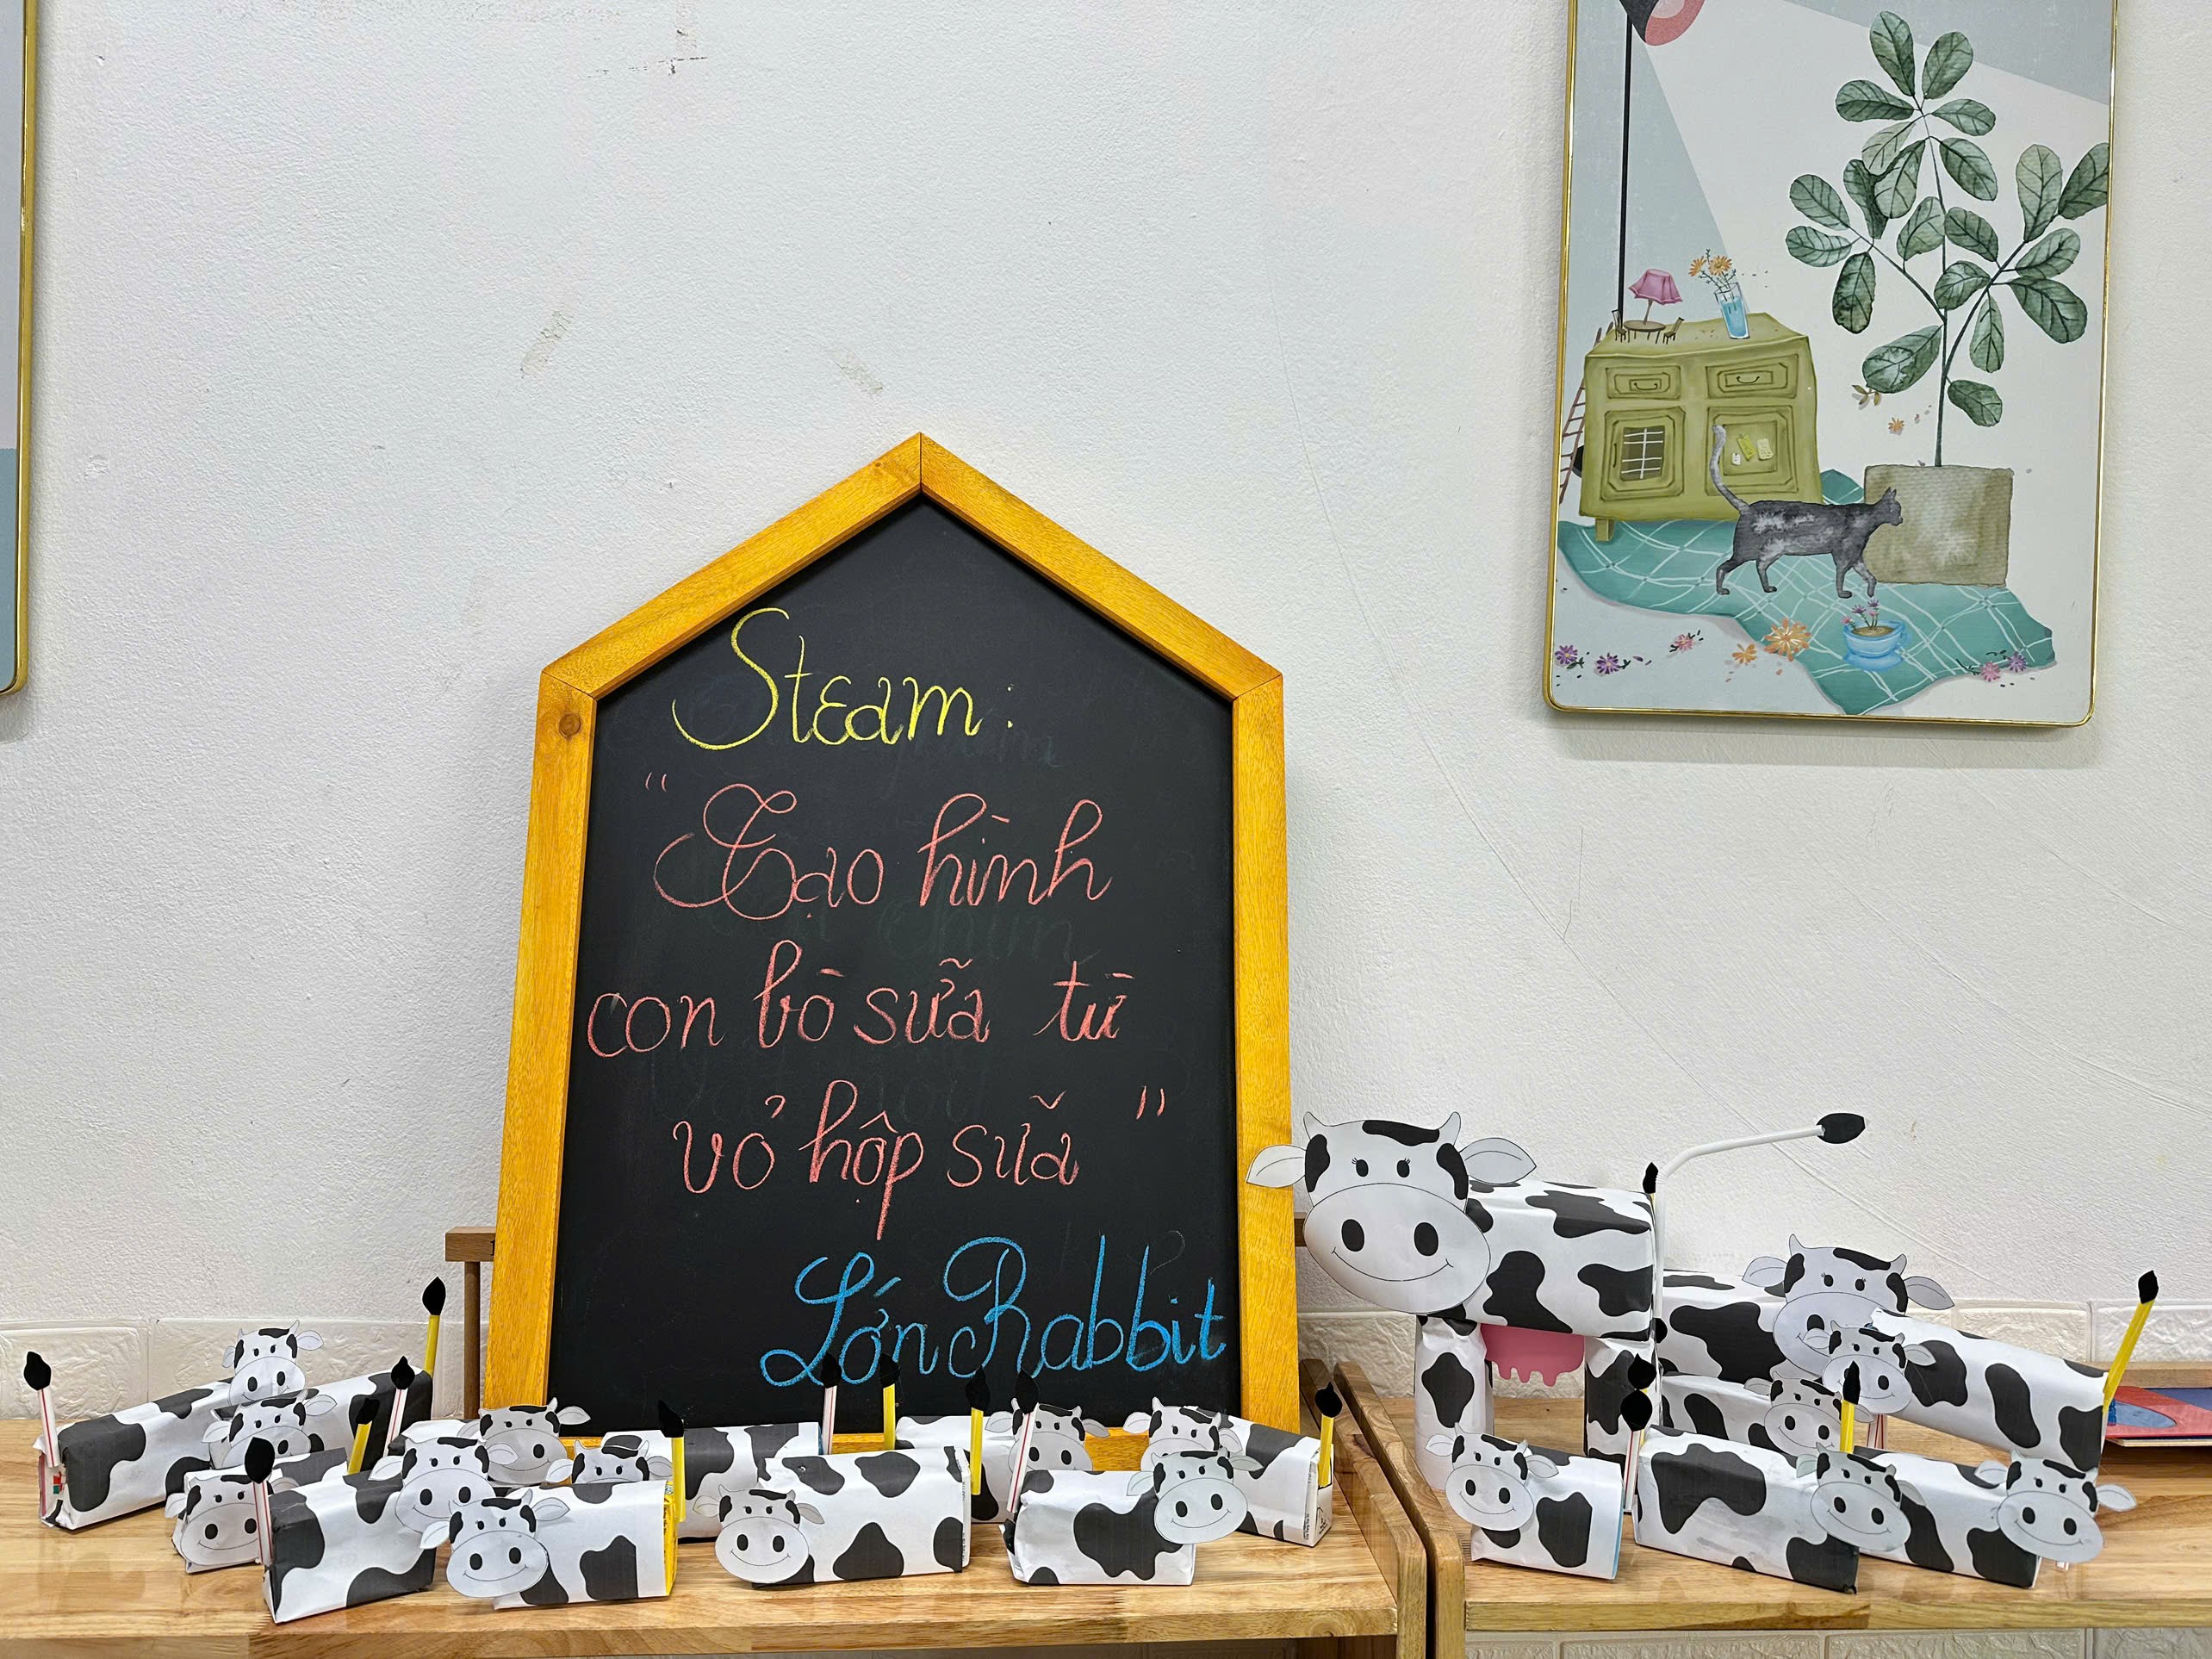 Steam:
"Tạo hình
con bò sữa từ
vỏ hộp sữa"
Lớn Rabbit